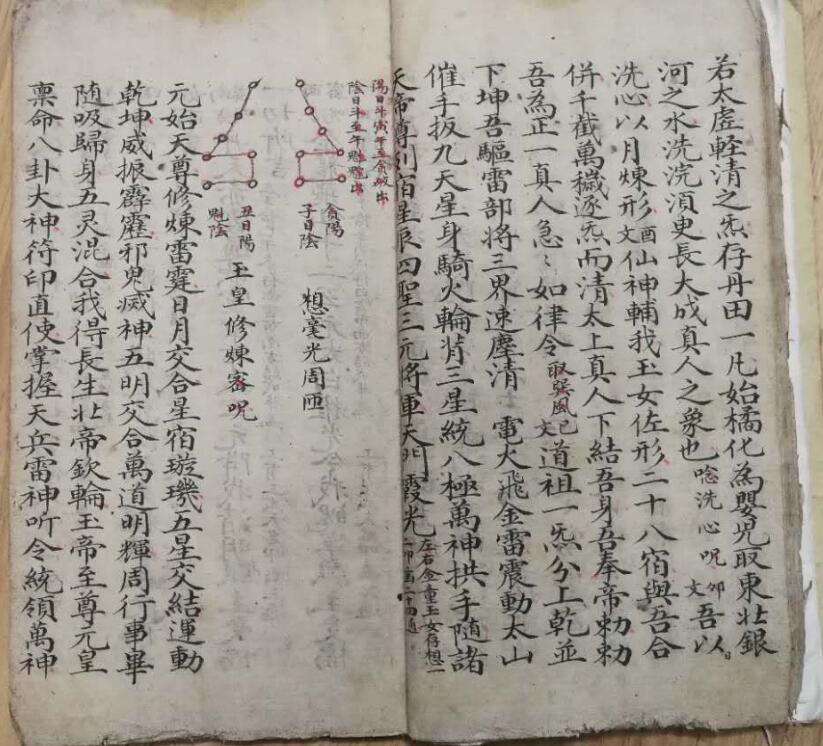 若太虛輕清之炁存丹田一凡始橘化為嬰児取東北銀
河之水洗浣湏更長大成真人之象也唸洗心呪夘文吾以日
洗心以月煉形酉文仙神輔我玉女佐形二十八宿與吾合
併千截萬穢逐炁而清太上真人下結吾身吾奉帝勅勅
吾為正一真人急〻如律令取巽風文已道祖一炁分上乾並
下坤吾驅雷部将三界速塵清 電火飛金雷震動太山
催手扳九天星身騎火輪背三星統八極萬神拱手随諸
天帝尊列宿星辰四聖三元将軍天門霞光左右金童玉女存想一
陽日斗寅午至貪 出
陰日斗至午魁 出
貪陽
子日陰
想毫光周匝
丑日陽
魁陰
玉皇修煉宻呪
元始天尊修煉雷霆日月交合星宿璇璣五星交結運動
乾坤威振霹靂邪鬼滅神五明交合萬道明輝周行事畢
随吸歸身五灵混合我得長生北帝欽輪玉帝至尊元皇
禀命八卦大神符印直使掌握天兵雷神听令統領萬神